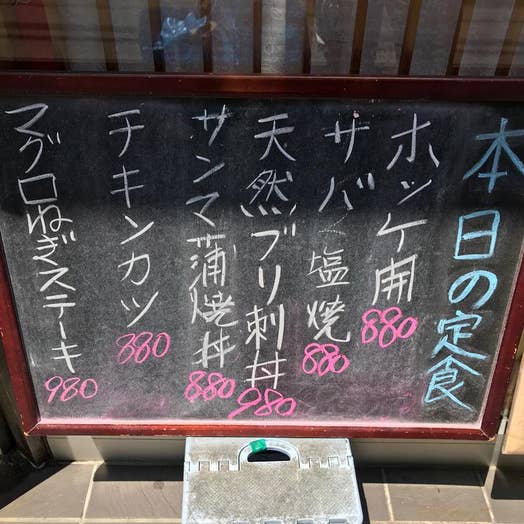 本日の定食
ホッケ開
880
サバ塩焼
880
天然ブリ刺丼
980
サンマ蒲焼丼
880
チキンカツ
880
マグロねぎステーキ
980